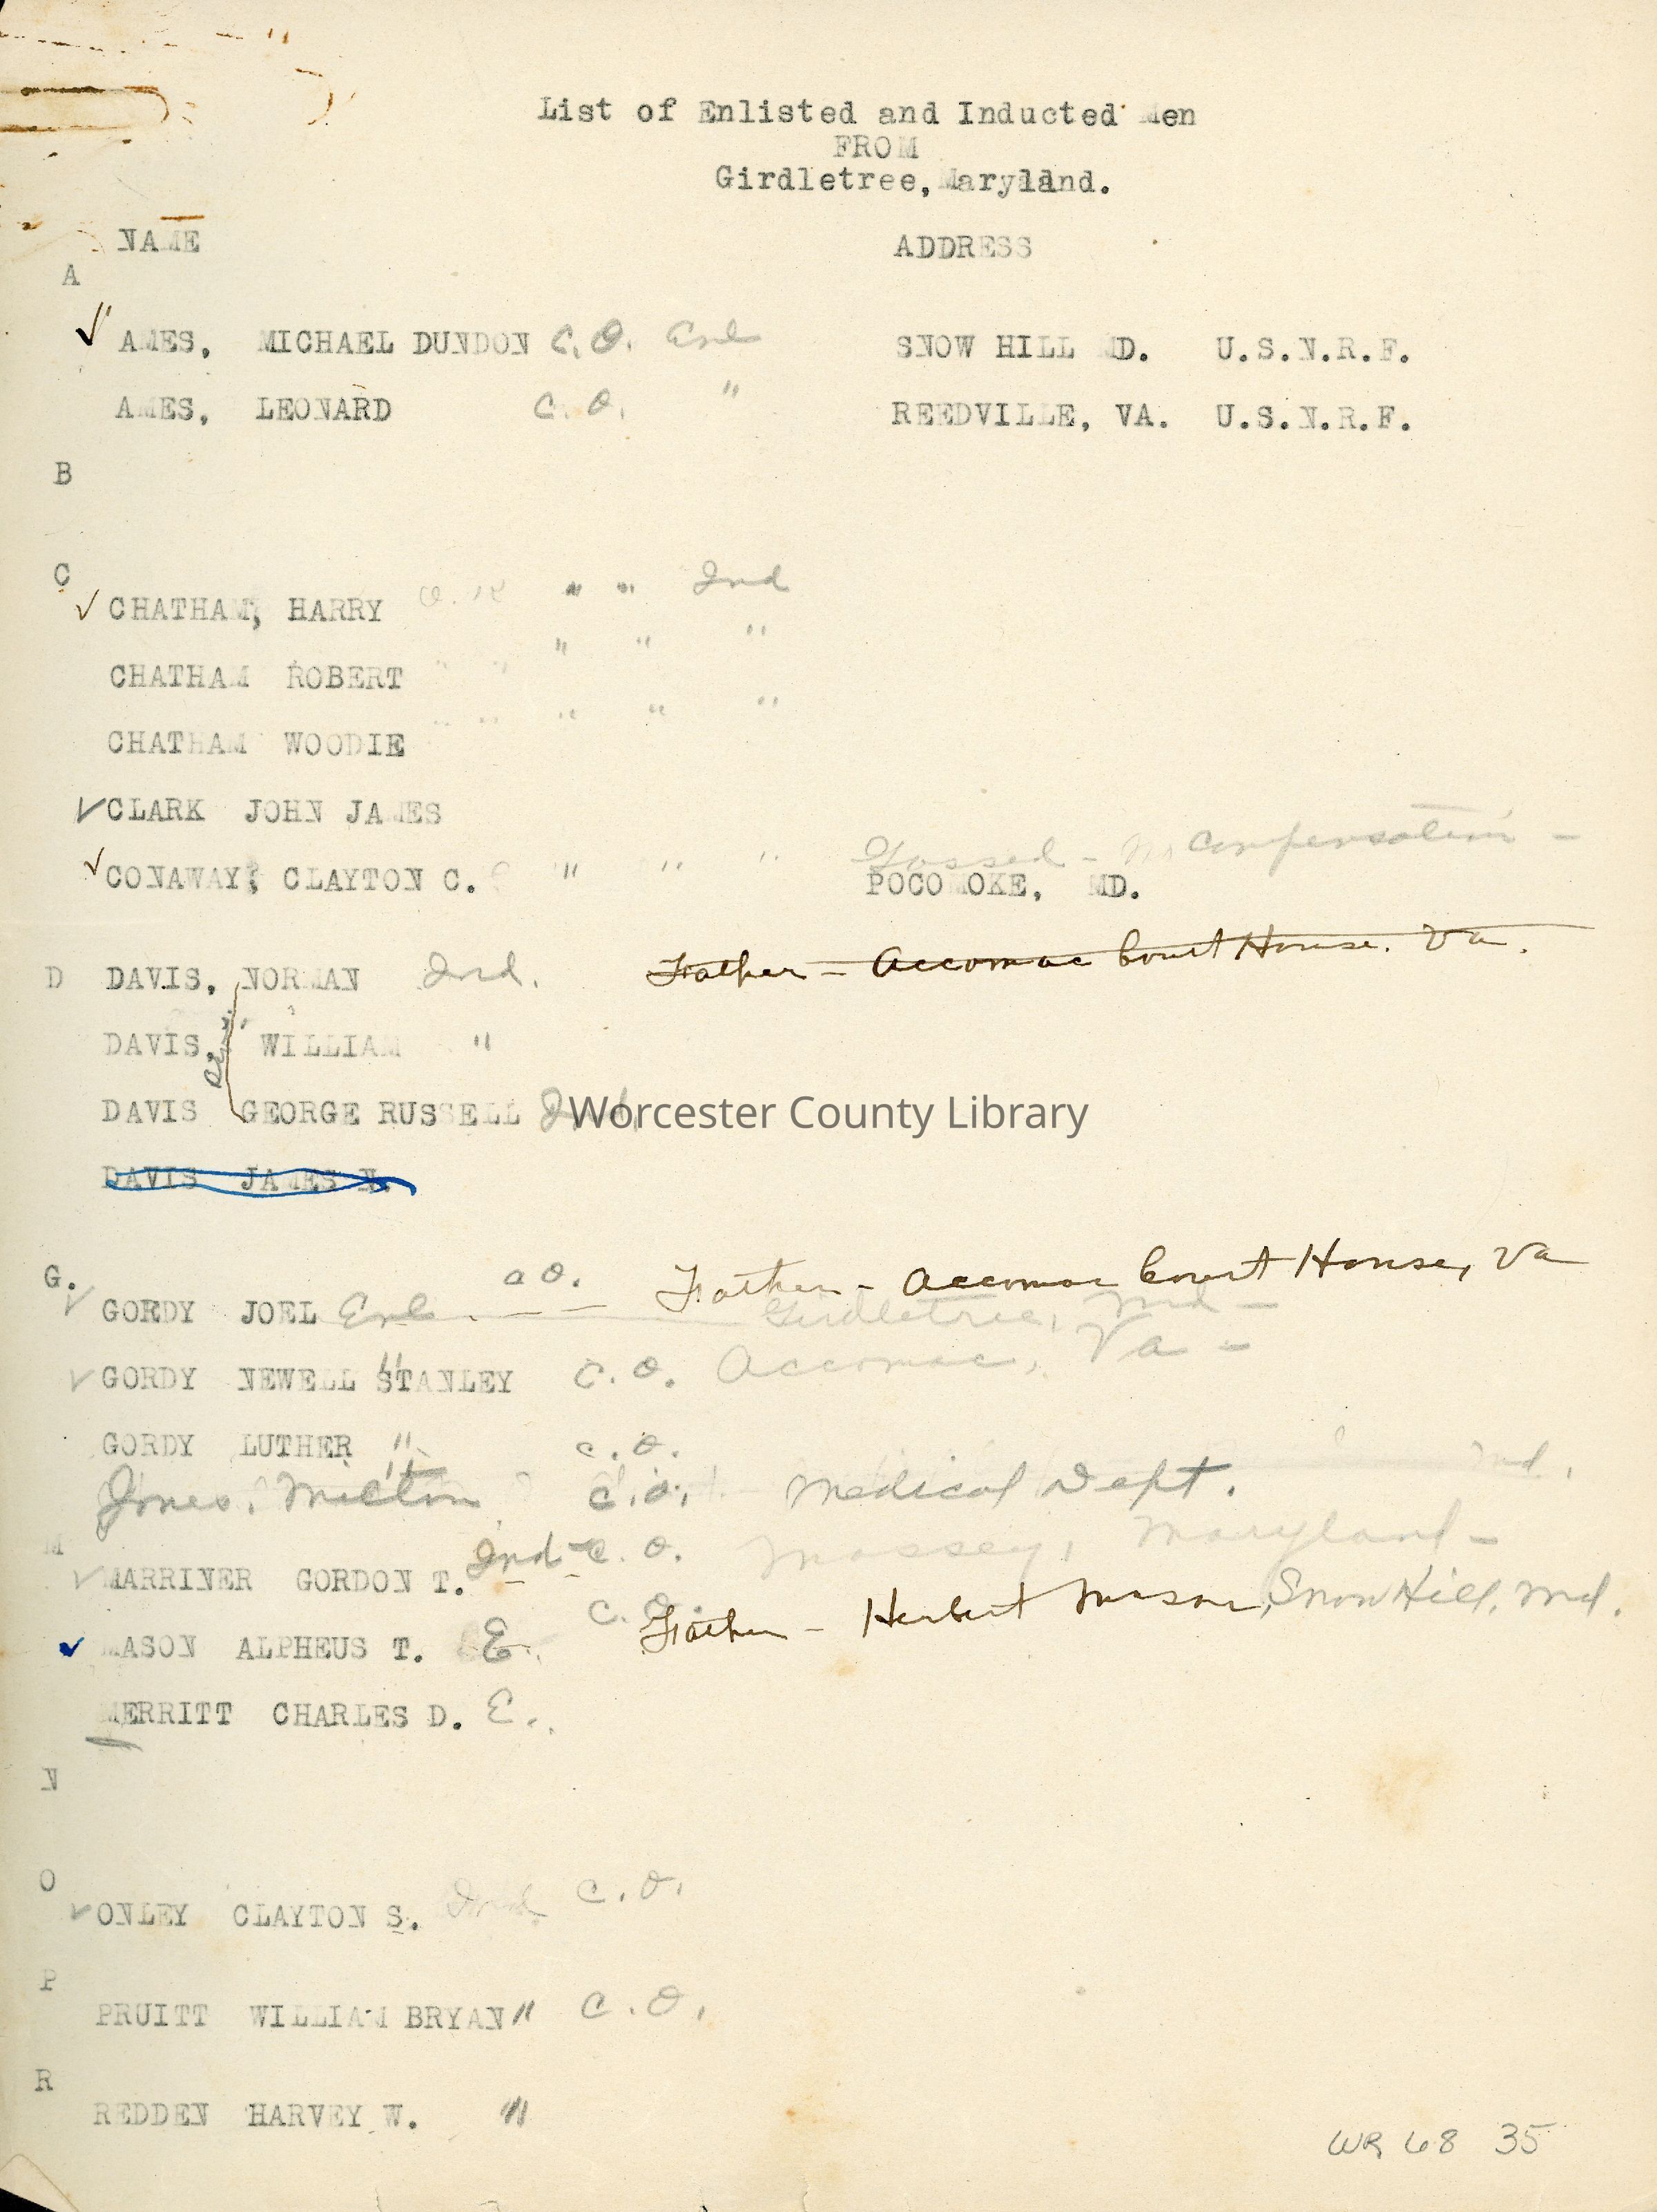 List of Enlisted and Inducted Men
FROM
Girdletree, Maryland.
NAME ADDRESS
A
✓ AMES, MICHAEL DUNDON C.O. Enl SNOW HILL MD. U.S.N.R.F.
AMES, LEONARD C.O. " REEDVILLE, VA. U.S.N.R.F.
B
C
✓ CHATHAM, HARRY O.K " " Ind
CHATHAM ROBERT " " " " "
CHATHAM WOODIE " " " " "
✓ CLARK JOHN JAMES
Gassed - No Compensation -
✓ CONAWAY, CLAYTON C. " " " POCOMOKE, MD.
D DAVIS, NORMAN Ind. Father - Accomac Court House. Va.
DAVIS, WILLIAM "
DAVIS GEORGE RUSSELL Ind
Worcester County Library
DAVIS JAMES N.
G.
a O. Father - Accomac Court House, Va
✓ GORDY JOEL Enl. Girdletree, Md -
✓ GORDY NEWELL STANLEY " C.O. Accomac, Va -
GORDY LUTHER " C.O.
Jones, Milton " C.O. Medical Dept. Md.
M
✓ MARRINER GORDON T. Ind - C.O. Massey, Maryland -
✓ MASON ALPHEUS T. E. C.O. Father - Herbert Mason, Snow Hill, Md.
MERRITT CHARLES D. E.
N
O
✓ ONLEY CLAYTON S. Ind C.O.
P
PRUITT WILLIAM BRYAN " C.O.
R
REDDEN HARVEY W. "
WR 68 35